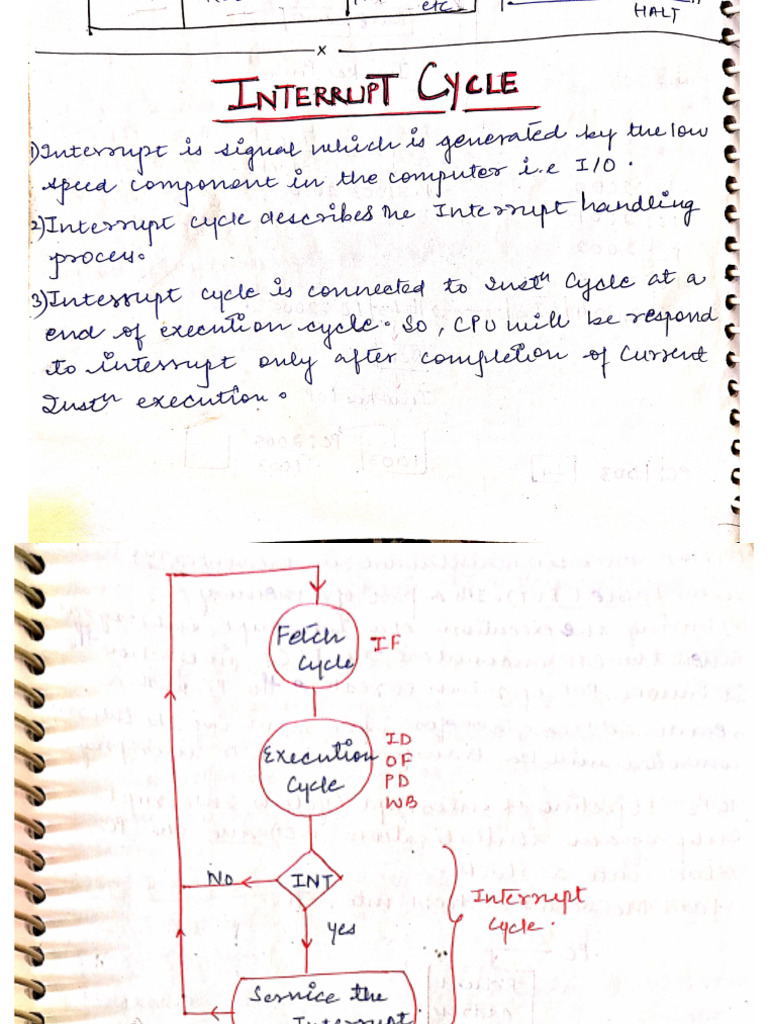 etc
HALT
x
INTERRUPT CYCLE
1) Interrupt is signal which is generated by the low
speed component in the computer i.e I/O.
2) Interrupt cycle describes the Interrupt handling
process.
3) Interrupt cycle is connected to Instn Cycle at a
end of execution cycle. So, CPU will be respond
to interrupt only after completion of Current
Instn execution.
Fetch
Cycle
IF
Execution
Cycle
ID
OF
PD
WB
No
INT
yes
Interrupt
Cycle.
Service the
Interrupt